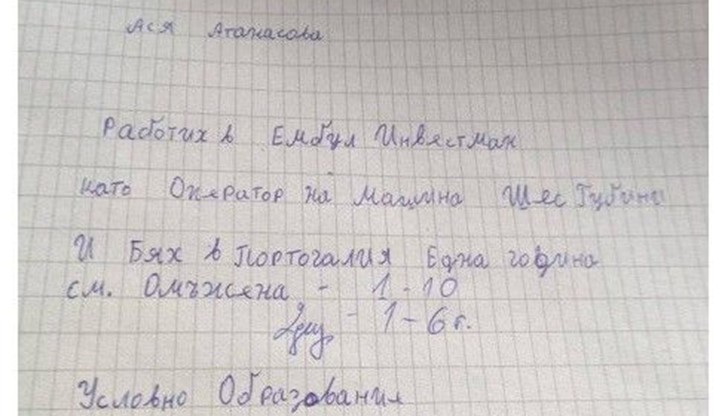 Ася Атанасова
Работих в Ембул Инвестман
като Оператор на Машина Шес Губини
И Бях в Портогалия Една година
см. Омъжена - 1-10
- 1-6 г.
Условно Образования